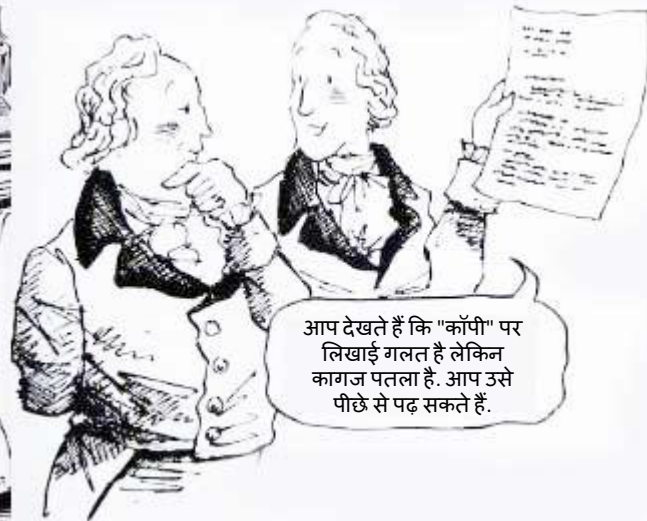 आप देखते हैं कि "कॉपी" पर
लिखाई गलत है लेकिन
कागज पतला है. आप उसे
पीछे से पढ़ सकते हैं.